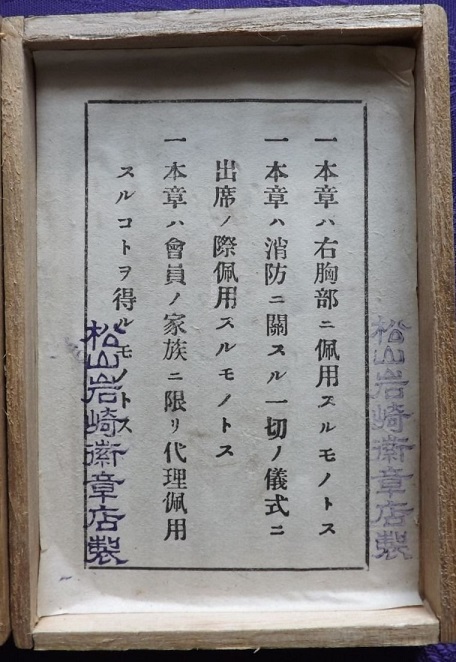 一本章ハ右胸部ニ佩用スルモノトス
一本章ハ消防ニ關スル一切ノ儀式ニ
出席ノ際佩用スルモノトス
一本章ハ會員ノ家族ニ限リ代理佩用
スルコトヲ得ルモノトス
松山岩崎徽章店製
松山岩崎徽章店製